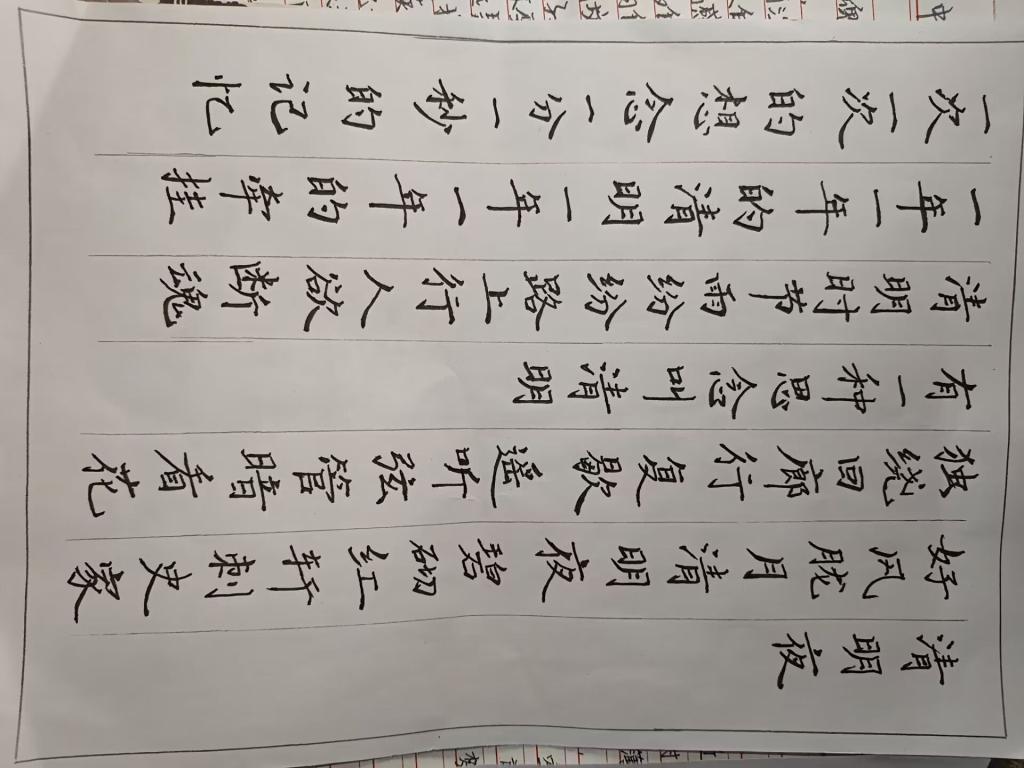 清明夜
好风胧月清明夜碧砌红轩刺史家
独绕回廊行复歇遥听弦管暗看花
有一种思念叫清明
清明时节雨纷纷路上行人欲断魂
一年一年的清明一年一年的牵挂
一次一次的想念一分一秒的记忆